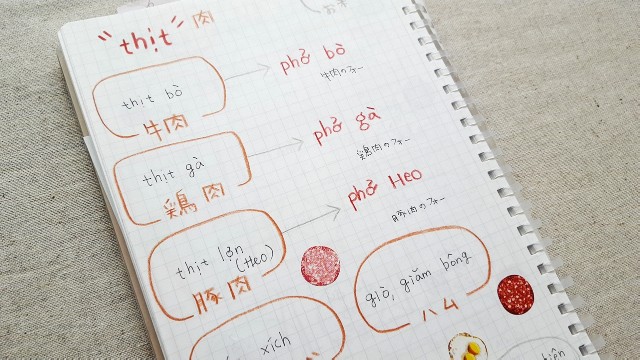 "thịt" 肉
thịt bò
牛肉
phở bò
牛肉のフォー
thịt gà
鶏肉
phở gà
鶏肉のフォー
thịt lợn
(Heo)
豚肉
phở Heo
豚肉のフォー
giò, giăm bông
ハム
xích